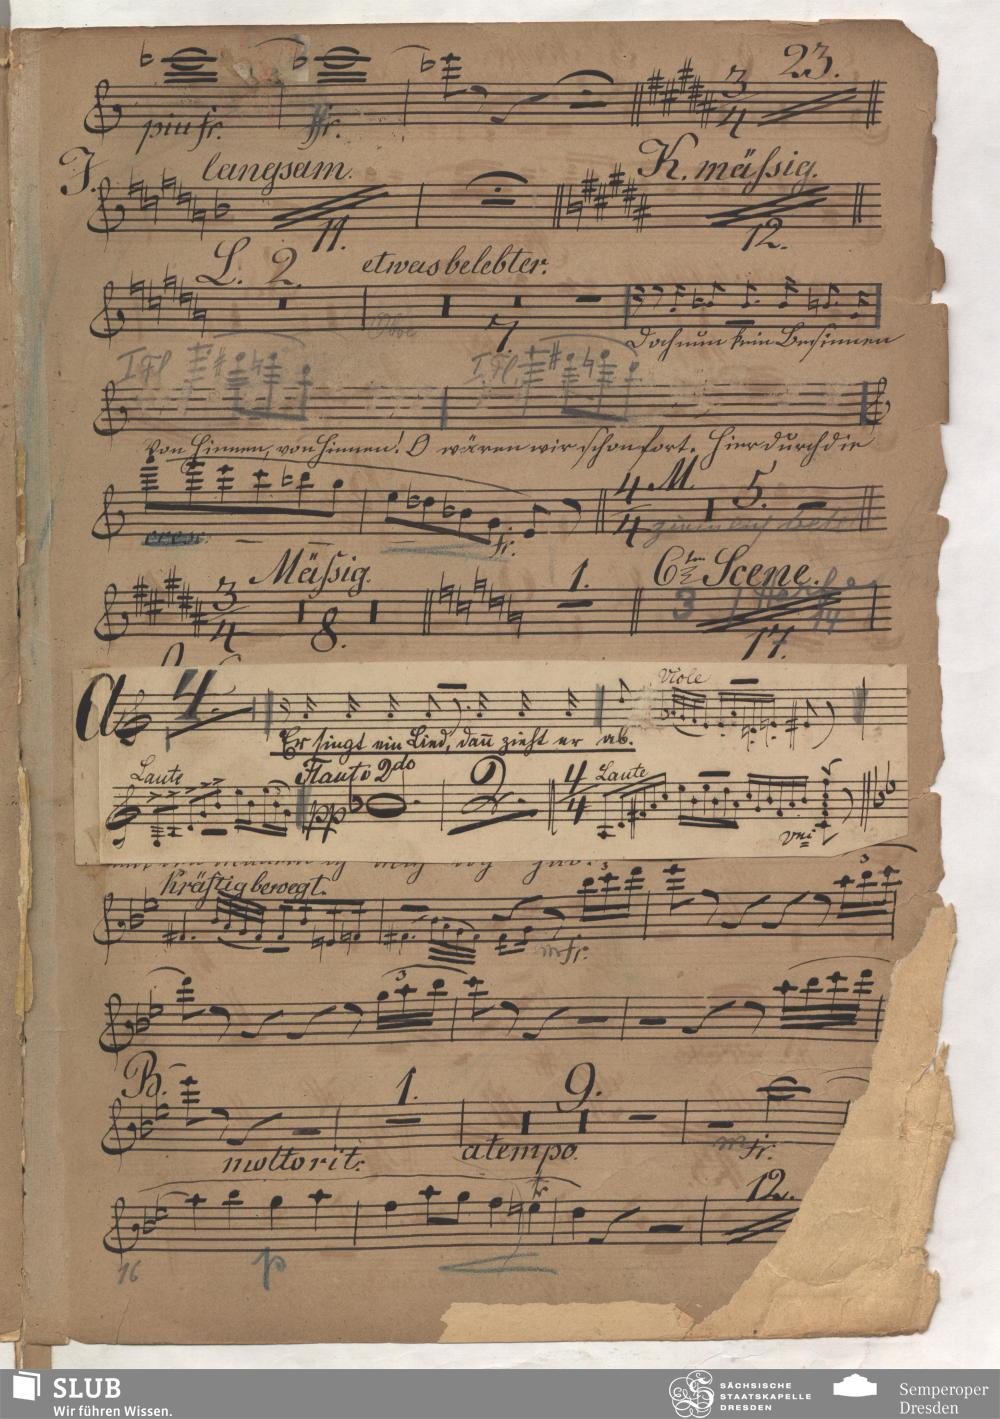 23.
3
4
piu fr. ffr.
J. langsam. K. mäßig.
11. 12.
L. 2. etwas belebter.
Oboe 7. Doch nun kein Besinnen
I Fl I Fl.
von hinnen, von hinnen! O wären wir schon fort. Hier durch die
4 M. 5.
4
cresc: fr.
Mäßig. 1. 6te Scene.
3
4
8. 17.
a 4. Viole
Er singt ein Lied, dan̄ zieht er ab.
Laute Flauto 2do 2. 4 Laute
4
pp vni
kräftig bewegt. 3
mfr.
3
B. 1. 9.
molto rit: a tempo. mfr.
tr 12.
16 p
SLUB
Wir führen Wissen.
SÄCHSISCHE
STAATSKAPELLE
DRESDEN
Semperoper
Dresden